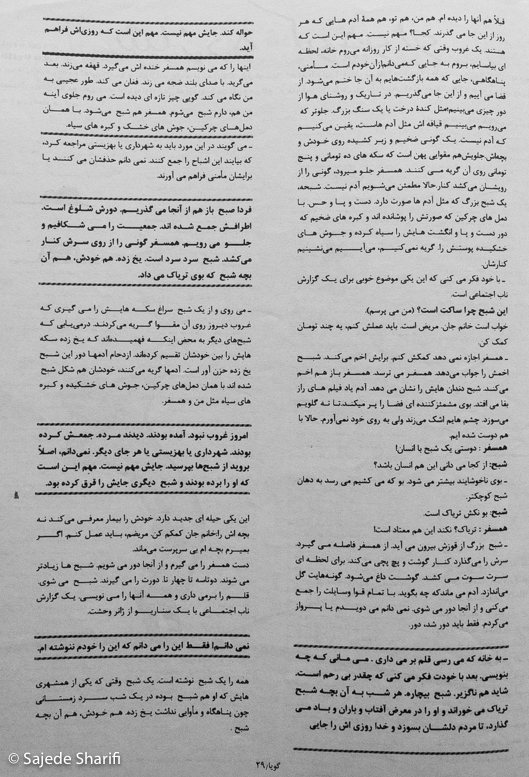 قبلاً هم آنها را دیده ام. هم من، هم تو، هم همهٔ آدم هایی که هر
روز از این جا می گذرند. کجا؟ مهم نیست. مهم این است که
هستند. یک غروب وقتی که خسته از کار روزانه می‌روم خانه، لحظه
ای بیاسایم، بروم به جایی که‌می‌دانم‌ازآن‌خودم است. مـــأمنی،
پناهگاهی، جایی که همه بازگشت‌هایم به آن جا ختم می‌شود. از
قضا می آییم و از این جا می‌گذریم. در تاریک و روشنای هوا از
دور چیزی می‌بینیم‌مثل کندهٔ درخت یا یک سنگ بزرگ. جلوتر که
می‌رویم می‌بینیم قیافه اش مثل آدم هاست، یقین می‌کنیـــم
که آدم نیست. یک گونی ضخیم و زبر کشیده روی خودش و
بچه‌اش جلویش‌هم مقوایی پهن است که سکه های ده تومانی و پنج
تومانی روی آن گریه مـی کننـد. همسفر جلو میـرود، گونی را از
رویشان می‌کشد کنار.حالا مطمئن می‌شویم آدم نیست. شبحه،
یک شبح بزرگ که مثل آدم ها صورت دارد. دست و پا و حس. با
دمل های چرکین که صورتش را پوشانده اند و کبره های ضخیم که
دور دست و پا و انگشت هایش را سیاه کرده و جـــوش هـای
خشکیده پوستش را. گریه نمی‌کنیــم، می‌آییـــم می‌نشینیم
کنارشان.
ـ با خود فکر می کنی که این یکی موضوع خوبی برای یک گزارش
ناب اجتماعی است.
این شبح چرا ساکت است؟ (من می پرسم).
خواب است خانم جان. مریض است. باید عملش کنم، یه چند تومان
کمک کن.
ـ همسفر اجازه نمی دهد کمکش کنم. برایش اخم می‌کند. شبـــح
اخمش را جواب می‌دهد. همسفر می ترسد. همسفر بـاز هـم اخـم
می‌کند. شبح دندان هایش را نشان می دهد. آدم یاد فیلم های راز
بقا می افتد. بوی مشمئزکننده ای فضا را پـر میکنـد.تا ته گلویم
می‌سوزد. چشم هایم اشک می‌زند ولی به روی خود نمی‌آورم. حالا با
هم دوست شده ایم.
همسفر : دوستی یک شبح با انسان!
شبح: از کجا می دانی این هم انسان باشد؟
ـ بوی ناخوشایند بیشتر می شود. بو که می کشیم می رسد به دهان
شبح کوچکتر.
شبح: بو نکش تریاک است.
همسفر : تریاک؟ نکند این هم معتاد است!
ـ شبح بزرگ از قوزش بیرون می آید. از همسفر فاصله مـی گیـرد.
سرش را می‌گذارد کنار گوشت و پچ پچی می‌کند. برای لحظه ای
سرت سوت مـی کشـد. گوشـت داغ می‌شود. گونه‌هایت گل
می‌اندازد. آدم می ماندکه چه بگوید. با تمـام قـوا وسایلت را جمع
می‌کنی و از آنجا دور می شوی. نمی دانم می دویـدم یـا پـــرواز
می‌کردم. فقط باید دور شد، دور.
ـ به خانه که می رسی قلم بر می داری . مـی مـانـی کـه چـه
بنویسی. بعد با خودت فکر می کنی که چقدر بی رحم است.
شاید هم ناگزیر. شبح بیچاره. هر شب به آن بچه شبح
تریاک می خوراند و او را در معرض آفتاب و باران و باد مـی
گذارد، تا مردم دلشان بسوزد و خدا روزی اش را جایی
حواله کند. جایش مهم نیست. مهم این است کـه روزی‌اش فراهـم
آید.
اینها را که می نویسم همسفر خنده اش می‌گیرد. قهقهه می‌زند. بعد
می‌گرید. با صدای بلند ضجه می زند. فغان می کند. طور عجیبی به
من نگاه می کند. گویی چیز تازه ای دیده است. می روم جلوی آینه
من هم، دارم شبح می‌شوم. همسفر هم شبح می‌شود. با همـان
دمل‌های چرکین، جوش های خشـک و کبره های سیاه.
ـ می گویند در این مورد باید به شهرداری یا بهزیستی مراجعه کرد،
که بیایند این اشباح را جمع کنند. نمی دانم حذفشان می کننـد یا
برایشان مأمنی فراهم می آورند.
فردا صبح باز هم از آنجا می گذریـــم. دورش شلوغ است.
اطرافش جمع شده اند. جمعیت را مـی شکـافیم و
جلـــو مـی رویـم. همسـفر گونـی را از روی سـرش کنار
می‌کشد. شبح سرد سرد است. یخ زده. هم خودش، هـم آن
بچه شبح که بوی تریاک می داد.
ـ می روی و از یک شبح سراغ سکـه هایـش را مـی گیری که
غروب دیروز روی آن مقــوا گـــریه می‌کردنـد. درمی‌یابی که
شبح‌های دیگر به محض اینکــه فهمیده‌انـد که یـخ زده سکه
هایش را بین خودشان تقسیم کرده‌اند. ازدحام آدمها دور این شبـح
یخ زده حزن آور است. آدمها گریه می‌کنند، خودشان هم شکل شبح
شده اند با همان دمل‌های چرکین، جوش های خشکیده و کبره
های سیاه مثل من و همسفر.
امروز غروب نبود. آمده بودند. دیدند مـرده. جمعـش کرده
بودند. شهرداری یا بهزیستی یا هر جای دیگر. نمی‌دانم، اصلاً
بروید از شبح‌ها بپرسید. جایش مهم نیست. مهم ایـن است
که او را برده بودند و شبح دیگری جایش را قرق کرده بود.
این یکی حیله ای جدید دارد. خودش را بیمار معرفی می‌کند نه
بچه اش را:خانم جان کمکم کن. مریضم، باید عمل کنـم. اگــر
بمیرم بچه ام بی سرپرست می‌ماند.
دست همسفر را می گیرم و از آنجا دور می شویم. شبح ها زیادتر
می شوند. دوتاسه تا چهار تا دورت را می گیرند. شبـح می شوی.
قلـــم را برمی داری و همـه آنهـا را مـی نویسـی. یک گـزارش
ناب اجتماعی با یک سناریــو از ژانر وحشت.
نمی دانم! فقط این را می دانم که این را خودم ننوشته ام.
همه را یک شبح نوشته است. یک شبح وقتی که یکی از همشهری
هایش که او هم شبح بوده در یـک شـب سـرد زمسـتانی
چون پناهگاه و مأوایی نداشت یخ زده. هـم خـودش، هـم آن بچه
شبح .
۸
گویا/۲۹
© Sajede Sharifi